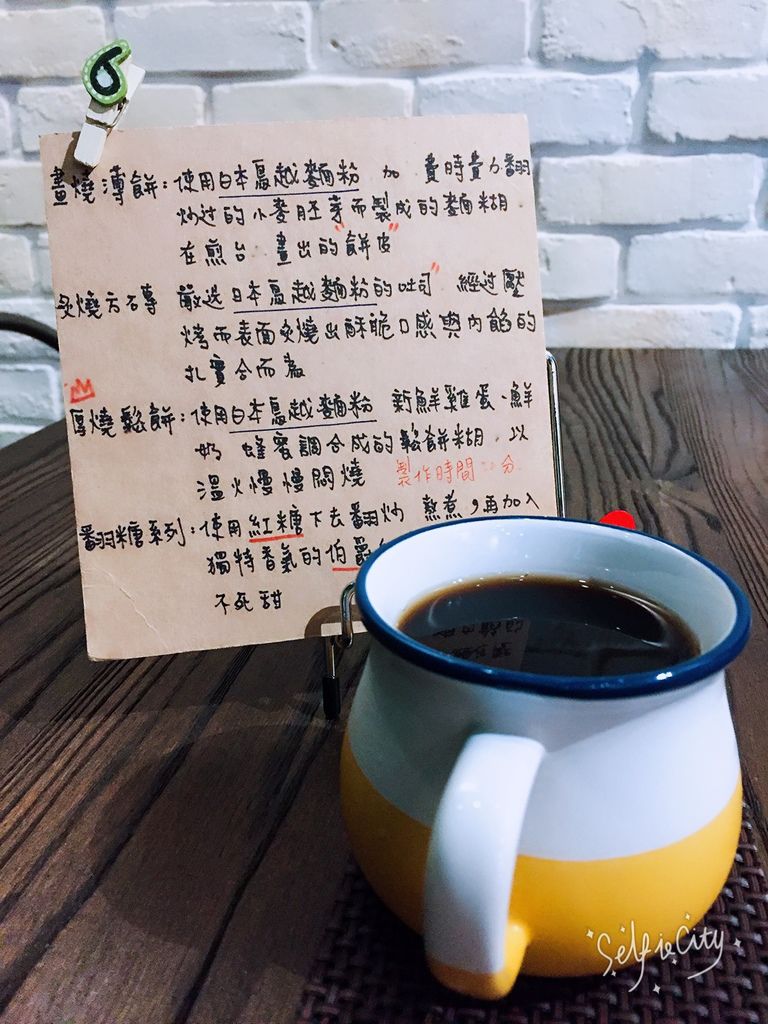 畫燒薄餅：使用日本鳥越麵粉 加 費時費力翻
炒过的小麥胚芽而製成的麵糊
在煎台 畫出的"餅皮"
炙燒方石專 嚴选日本鳥越麵粉的吐司" 經过壓
烤而表面炙燒出酥脆口感與內餡的
扎實合而為
厚燒鬆餅：使用日本鳥越麵粉 新鮮雞蛋、鮮
奶 蜂蜜調合成的鬆餅糊，以
溫火慢慢悶燒 製作時間 分
翻糖系列：使用紅糖下去翻炒 熬煮，再加入
獨特香氣的伯爵
不死甜
6
SelfieCity